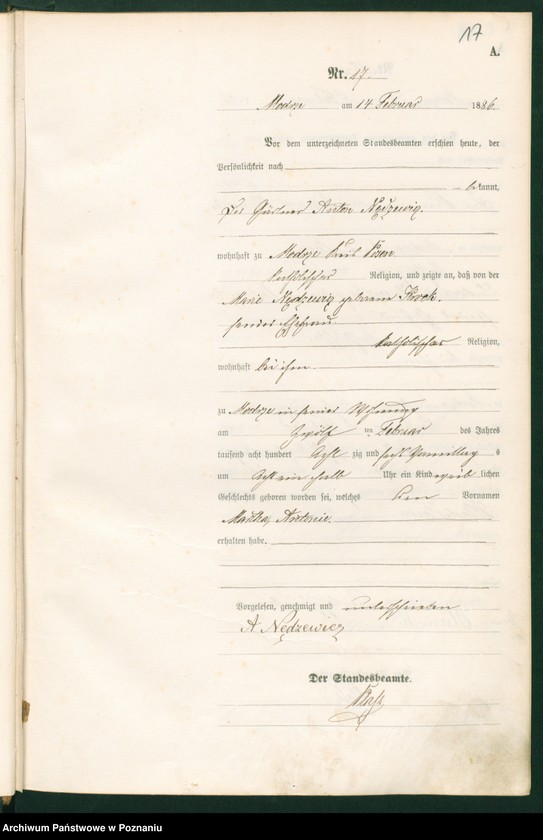 17
A.
Nr. 17.
Modrze am 14 Februar 1886.
Vor dem unterzeichneten Standesbeamten erschien heute, der
Persönlichkeit nach
bekannt,
Der Gärtner Anton Nędzewicz.
wohnhaft zu Modrze Kreis Posen
katholischer Religion, und zeigte an, daß von der
Marie Nędzewicz geborene
seiner Ehefrau
katholischer Religion,
wohnhaft bei ihm
zu Modrze in seiner Wohnung
am zwölf ten Februar des Jahres
tausend acht hundert acht zig und sechs Vormittag s
um acht ein halb Uhr ein Kind weib lichen
Geschlechts geboren worden sei, welches den Vornamen
Antonie.
erhalten habe.
Vorgelesen, genehmigt und unterschrieben
A Nędzewicz
Der Standesbeamte.
Archiwum Państwowe w Poznaniu